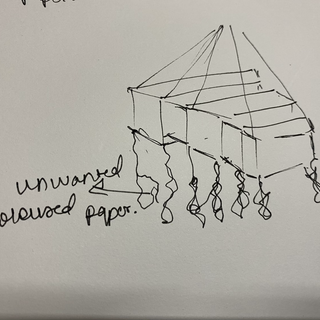 unwanted
oloured paper.